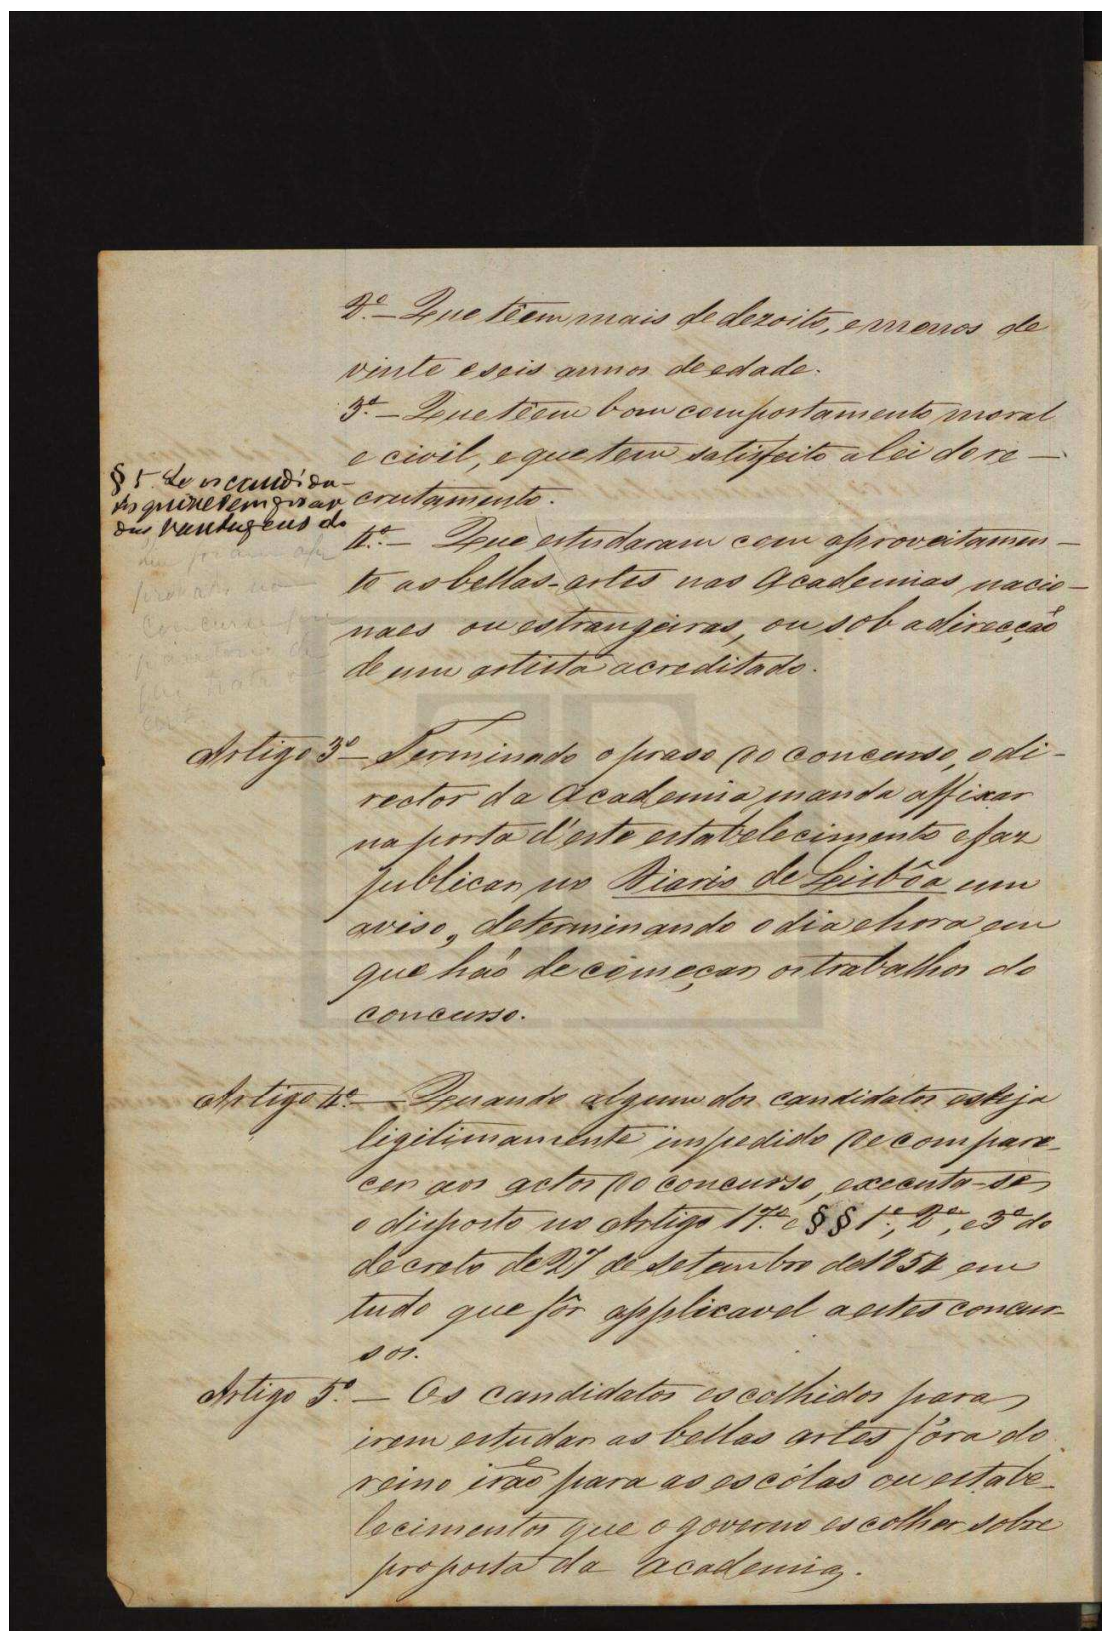 2.º — Que têem mais de dezoito, e menos de
vinte e seis annos de edade.
3.º — Que têem bom comportamento moral
e civil, e que tem satisfeito a lei do re-
crutamento.
§ 1 Se os candida-
tos quizerem gosar
das vantagens do
4.º — Que estudaram com aproveitamen-
to as bellas-artes nas Academias nacio-
naes ou estrangeiras, ou sob a direcção
de um artista acreditado.
Artigo 3º — Terminado o praso do concurso, o di-
rector da Academia manda affixar
na porta d'este estabelecimento e faz
publicar no Diario de Lisbôa um
aviso, determinando o dia e hora em
que hão de começar os trabalhos do
concurso.
Artigo 4.º — Quando algum dos candidatos esteja
ligitimamente impedido de compare-
cer aos actos do concurso, executa-se
o disposto no Artigo 17.º e §§ 1.º, 2.º, e 3º do
decreto de 27 de setembro de 1854 em
tudo que fôr applicavel a estes concur-
sos.
Artigo 5.º — Os candidatos escolhidos para
irem estudar as bellas artes fóra do
reino irão para as escólas ou estabe-
lecimentos que o governo escolher sobre
proposta da Academia.